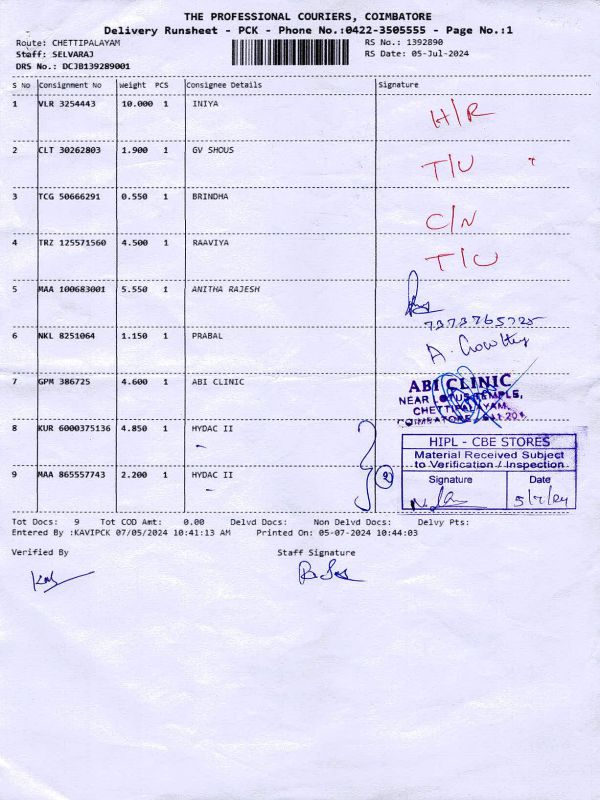 THE PROFESSIONAL COURIERS, COIMBATORE
Delivery Runsheet - PCK - Phone No.:0422-3505555 - Page No.:1
Route: CHETTIPALAYAM RS No.: 1392890
Staff: SELVARAJ RS Date: 05-Jul-2024
DRS No.: DCJB139289001
S No Consignment No Weight PCS Consignee Details Signature
1 VLR 3254443 10.000 1 INIYA H/R
2 CLT 30262803 1.900 1 GV SHOUS T/U
3 TCG 50666291 0.550 1 BRINDHA C/N
4 TRZ 125571560 4.500 1 RAAVIYA T/U
5 MAA 100683001 5.550 1 ANITHA RAJESH
6 NKL 8251064 1.150 1 PRABAL A.
7 GPM 386725 4.600 1 ABI CLINIC ABI CLINIC
NEAR LOTUS TEMPLE,
CHETTIPALAYAM,
COIMBATORE - 641 201
8 KUR 6000375136 4.850 1 HYDAC II
HIPL - CBE STORES
Material Received Subject
to Verification / Inspection
9 MAA 865557743 2.200 1 HYDAC II 2
Signature Date
5/7/24
Tot Docs: 9 Tot COD Amt: 0.00 Delvd Docs: Non Delvd Docs: Delvy Pts:
Entered By :KAVIPCK 07/05/2024 10:41:13 AM Printed On: 05-07-2024 10:44:03
Verified By Staff Signature